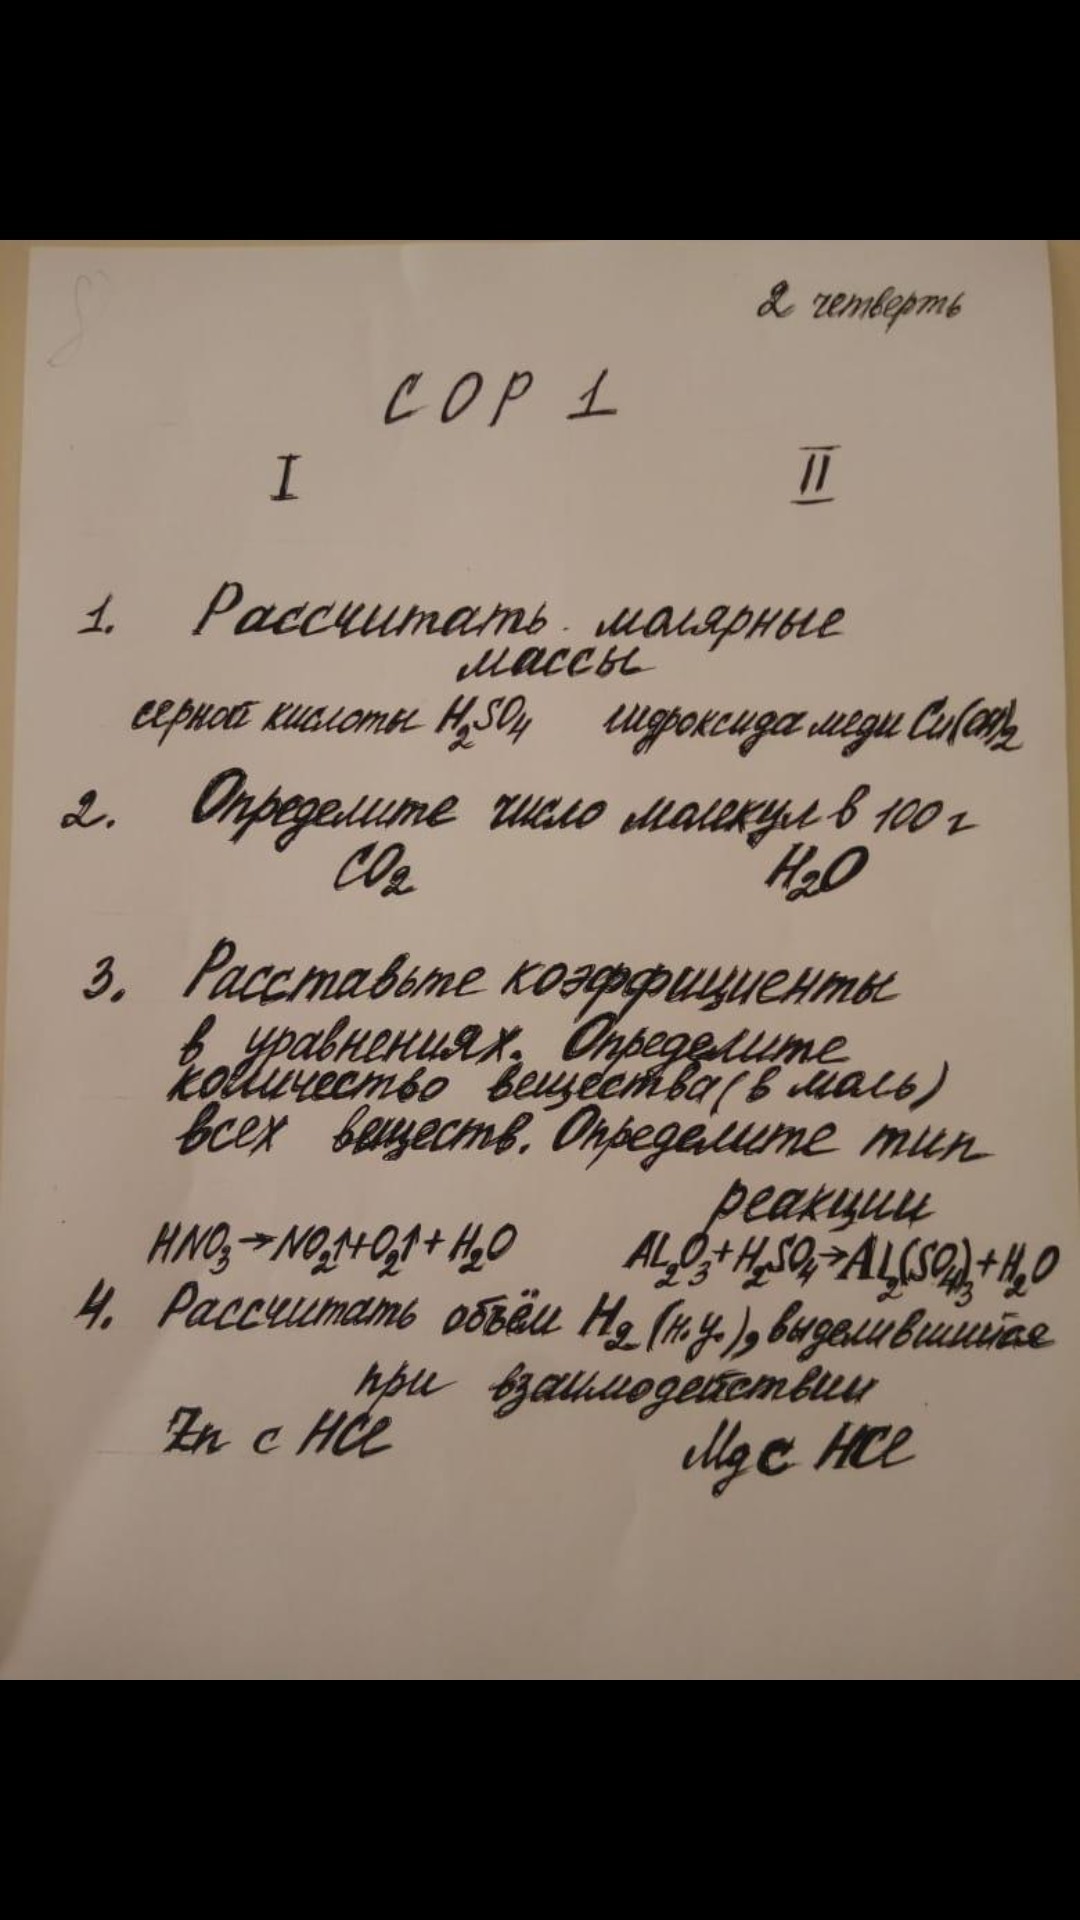 2 четверть
СОР 1
I II
1. Рассчитать молярные
массы
серной кислоты H₂SO₄ гидроксида меди Cu(OH)₂
2. Определите число молекул в 100 г
CO₂ H₂O
3. Расставьте коэффициенты
в уравнениях. Определите
количество вещества (в моль)
всех веществ. Определите тип
реакции
HNO₃→NO₂↑+O₂↑+H₂O AL₂O₃+H₂SO₄→AL₂(SO₄)₃+H₂O
4. Рассчитать объём H₂ (н.у.), выделившийся
при взаимодействии
Zn с HCl Mg с HCl